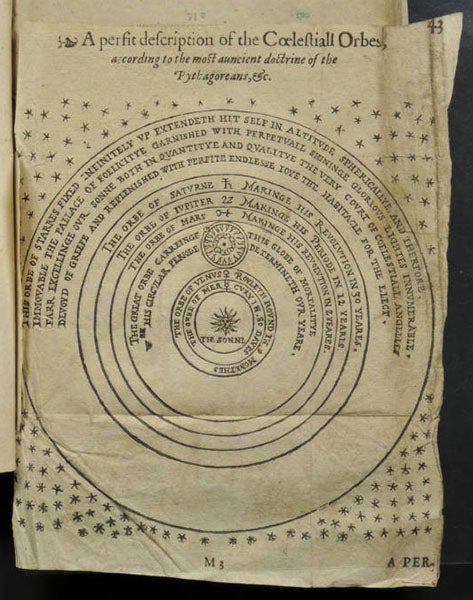 43
A perfit description of the Cœlestiall Orbes,
according to the most auncient doctrine of the
Pythagoreans, &c.
THIS ORBE OF STARRES FIXED INFINITELY VP EXTENDETH HIT SELF IN ALTITVDE SPHERICALLYE AND THEREFORE
IMMOVABLE THE PALLACE OF FOELICITYE GARNISHED WITH PERPETVALL SHININGE GLORIOVS LIGHTES INNVMERABLE.
FARR EXCELLINGE OVR SONNE BOTH IN QVANTITYE AND QVALITYE THE VERY COVRT OF COELESTIALL ANGELLES
DEVOYD OF GREEFE AND REPLENISHED WITH PERFITE ENDLESSE IOYE THE HABITACLE FOR THE ELECT.
THE ORBE OF SATVRNE ♄ MAKINGE HIS REVOLVTION IN 30 YEARES.
THE ORBE OF IVPITER ♃ MAKINGE HIS PERIODE IN 12 YEARES
THE ORBE OF MARS ♂ MAKINGE HIS REVOLVTION IN 2 YEARES.
THE GREAT ORBE CARREINGE THIS GLOBE OF MORTALITYE
HIS CIRCVLAR PERIODE DETERMINETH OVR YEARE.
THE ORBE OF VENVS ♀ ROVLETH ROVND IN 9 MONETHES
THE ORBE OF MERCVRY IN 80 DAYES
THE SONNE
M3
A PER-